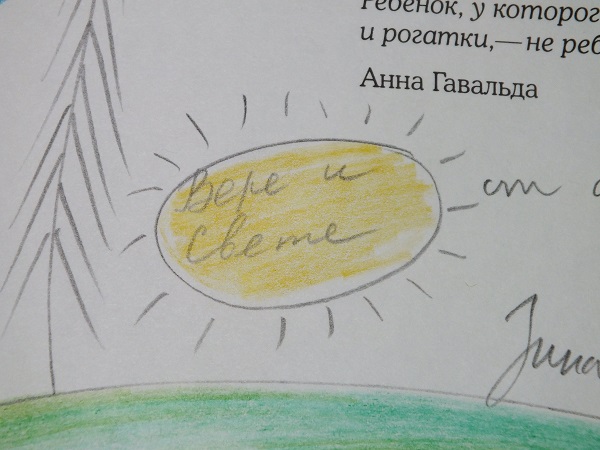 Ребёнок, у которог
и рогатки,—не реб
Анна Гавальда
Вере и
Свете
от